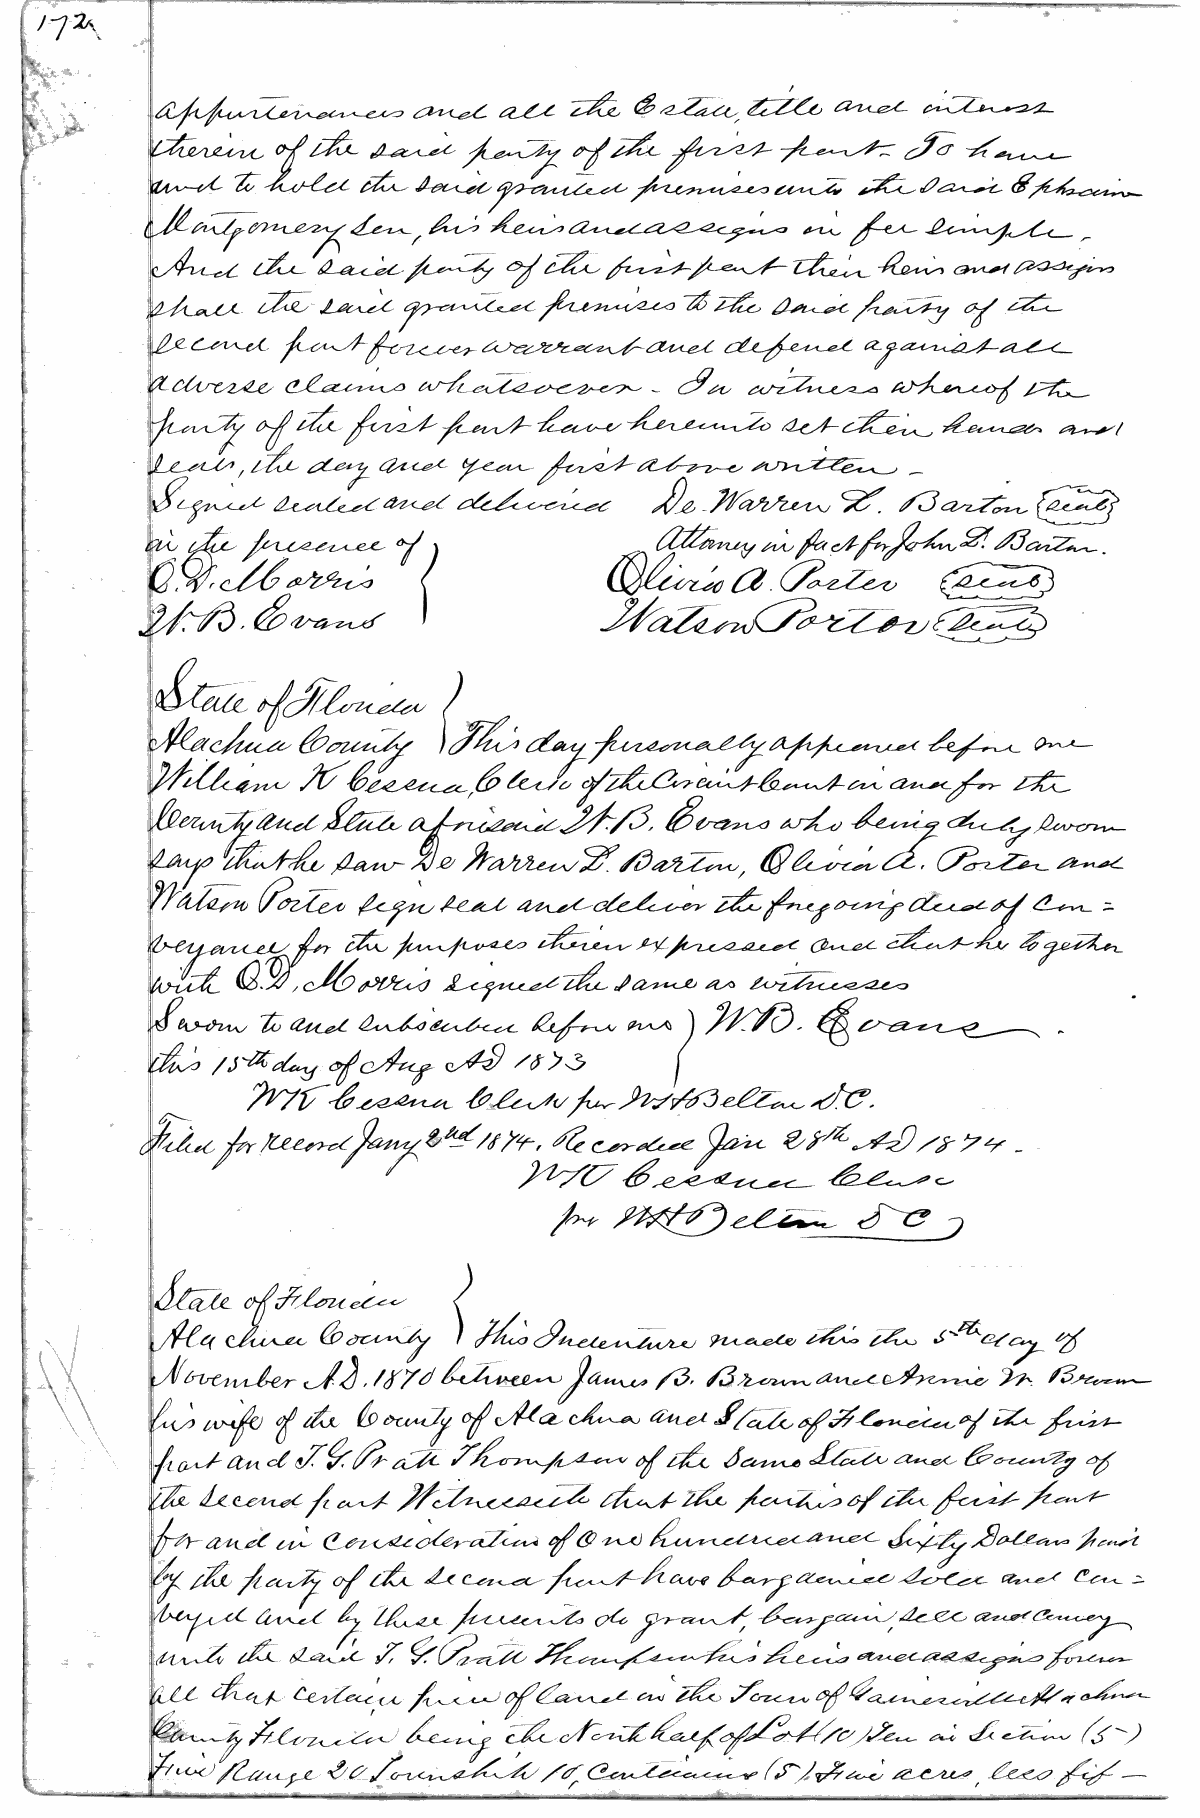 172
appurtenances and all the Estate, title and interest
therein of the said party of the first part. To have
and to hold the said granted premises unto the said Ephraim
Montgomery Sen, his heirs and assigns in fee simple.
And the said party of the first part their heirs and assigns
shall the said granted premises to the said party of the
second part forever warrant and defend against all
adverse claims whatsoever - In witness whereof the
party of the first part have hereunto set their hands and
seals, the day and year first above written -
Signed sealed and delivered De Warren L. Barton (seal)
in the presence of Attorney in fact for John D. Barton.
O. D. Morris Olivia A. Porter (seal)
W. B. Evans Watson Porter (seal)
State of Florida
Alachua County This day personally appeared before me
William K Cessna, Clerk of the Circuit Court in and for the
County and State aforesaid W. B. Evans who being duly sworn
says that he saw De Warren L. Barton, Olivia A. Porter and
Watson Porter sign seal and deliver the foregoing deed of Con=
veyance for the purposes therein expressed and that he together
with O. D. Morris signed the same as witnesses
Sworn to and subscribed before me W. B. Evans
this 15th day of Aug AD 1873
WK Cessna Clerk per WH Belton D.C.
Filed for record Jany 2nd 1874. Recorded Jan 28th AD 1874 -
WK Cessna Clerk
per WH Belton D C
State of Florida
Alachua County This Indenture made this the 5th day of
November A.D. 1870 between James B. Brown and Annie W. Brown
his wife of the County of Alachua and State of Florida of the first
part and T. G. Pratt Thompson of the Same State and County of
the second part Witnesseth that the parties of the first part
for and in consideration of One hundred and Sixty Dollars paid
by the party of the second part have bargained sold and con=
veyed and by these presents do grant, bargain, sell and convey
unto the said T. G. Pratt Thompson his heirs and assigns forever
all that certain, piece of land in the Town of Gainesville Alachua
County Florida being the North half of Lot (10) Ten in Section (5)
Five Range 20 Township 10, containing (5) Five acres, less fif-